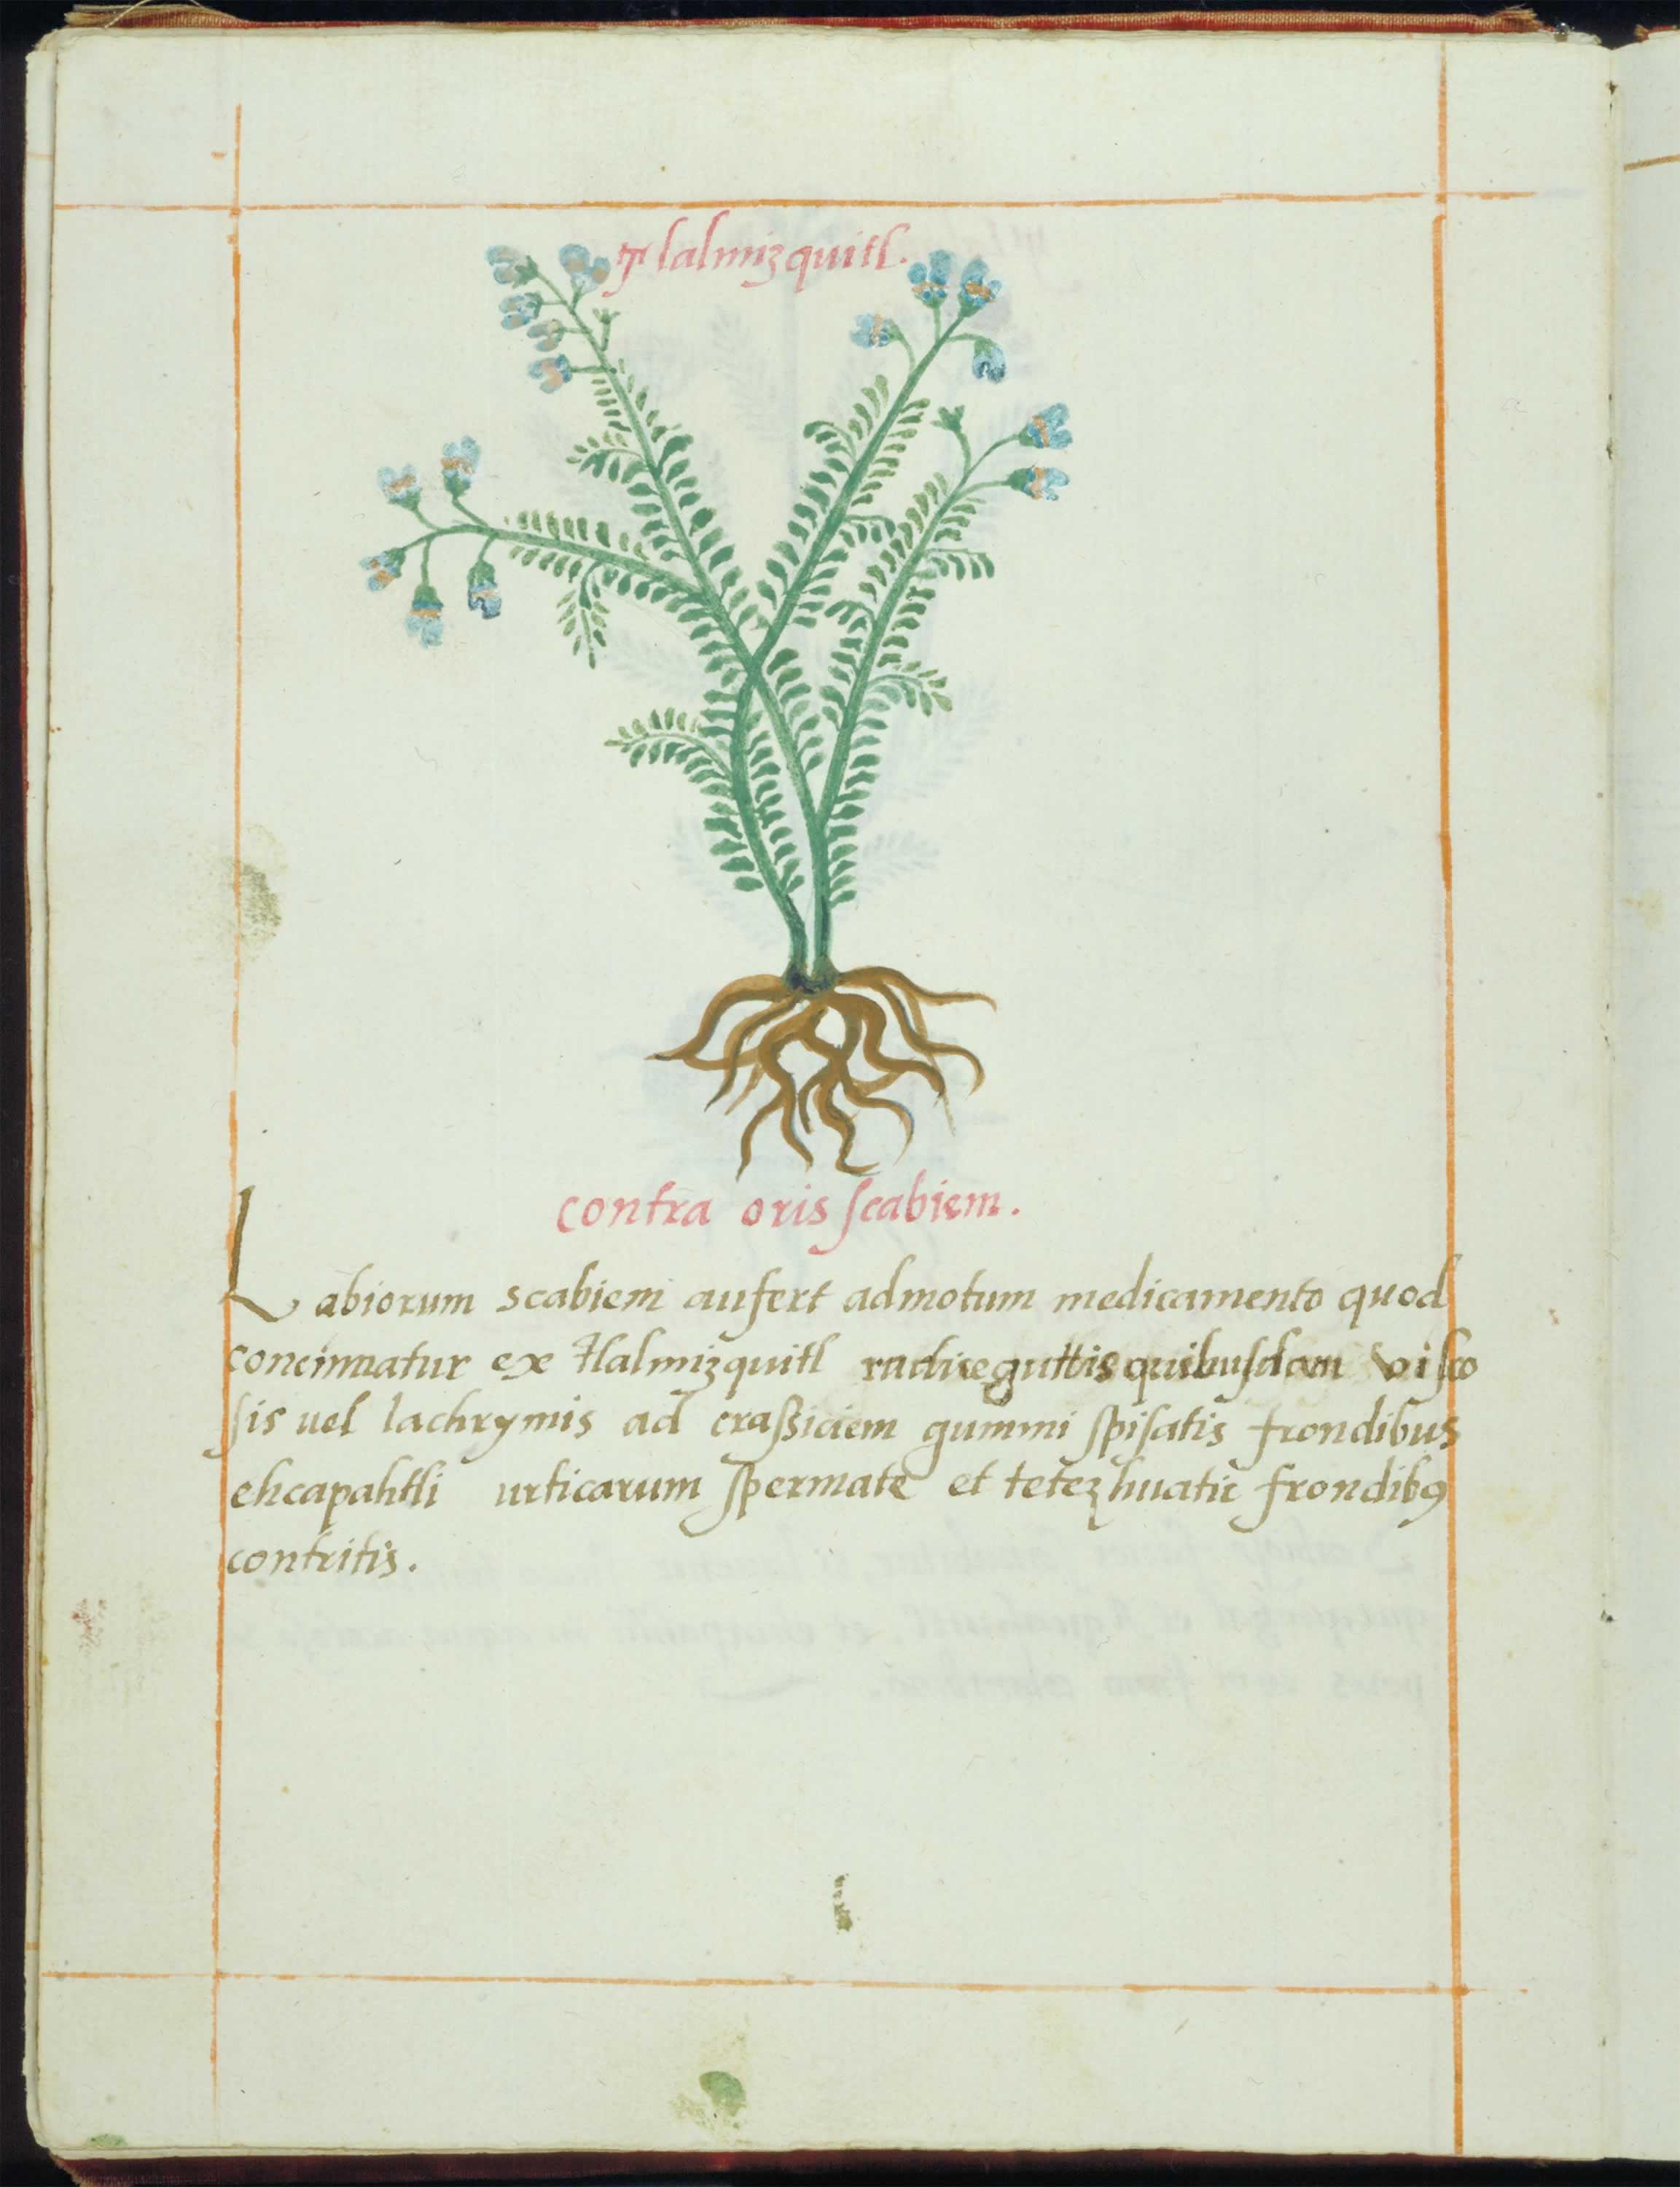 Tlalmizquitl.
contra oris ſcabiem.
Labiorum scabiem aufert admotum medicamento quod
concinnatur ex tlalmizquitl radice guttis quibuſdam viſco
ſis uel lachrymis ad craſsiciem gummi ſpiſatis frondibus
ehcapahtli urticarum ſpermate et tetezhuatic frondibꝰ
contritis.